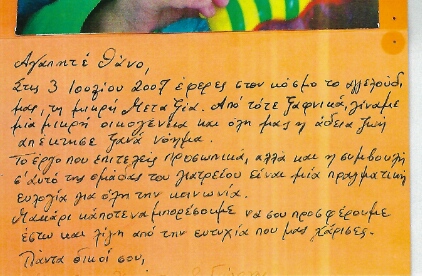 Αγαπητέ Θάνο,
Στις 3 Ιουλίου 2007 έφερες στον κόσμο το αγγελούδι
μας, τη μικρή Μεταξία. Από τότε ξαφνικά, γίναμε
μία μικρή οικογένεια και όλη μας η άδεια ζωή
απέκτησε ξανά νόημα.
Το έργο που επιτελείς προσωπικά, αλλά και η συμβουλή
σ' αυτό της ομάδας του Ιατρείου είναι μία πραγματική
ευλογία για όλη την κοινωνία.
Μακάρι κάποτε να μπορέσουμε να σου προσφέρουμε
έστω και λίγη από την ευτυχία που μας χάρισες.
Πάντα δικοί σου,